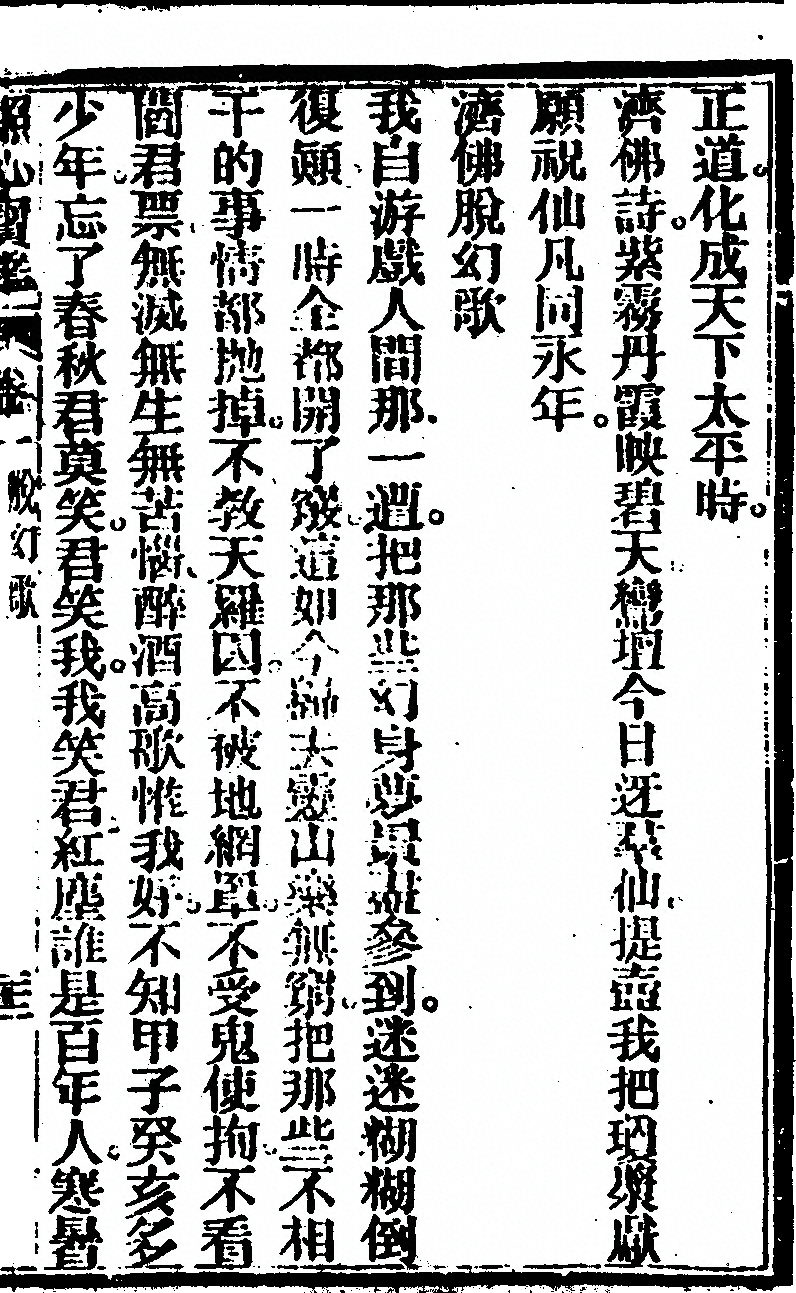 正道。化成天下太平時。
濟佛詩。紫霧丹霞映碧天。鸞壇今日迓羣仙。提壺我把瓊漿獻
願祝仙凡同永年。
濟佛脫幻歌
我自游戲人間那一遭。把那些幻身夢景世參到。迷迷糊糊倒
復顛。一時全都開了竅。這如今歸去靈山樂無窮。把那些不相
干的事情都拋掉。不教天羅因。不被地網單。不受鬼使拘。不看
閻君票。無滅無生無苦惱。醉酒高歌惟我好。不知甲子癸亥多
少年。忘了春秋君莫笑。君笑我。我笑君。紅塵誰是百年人。寒暑
照心寶鑑 卷一 脫幻歌